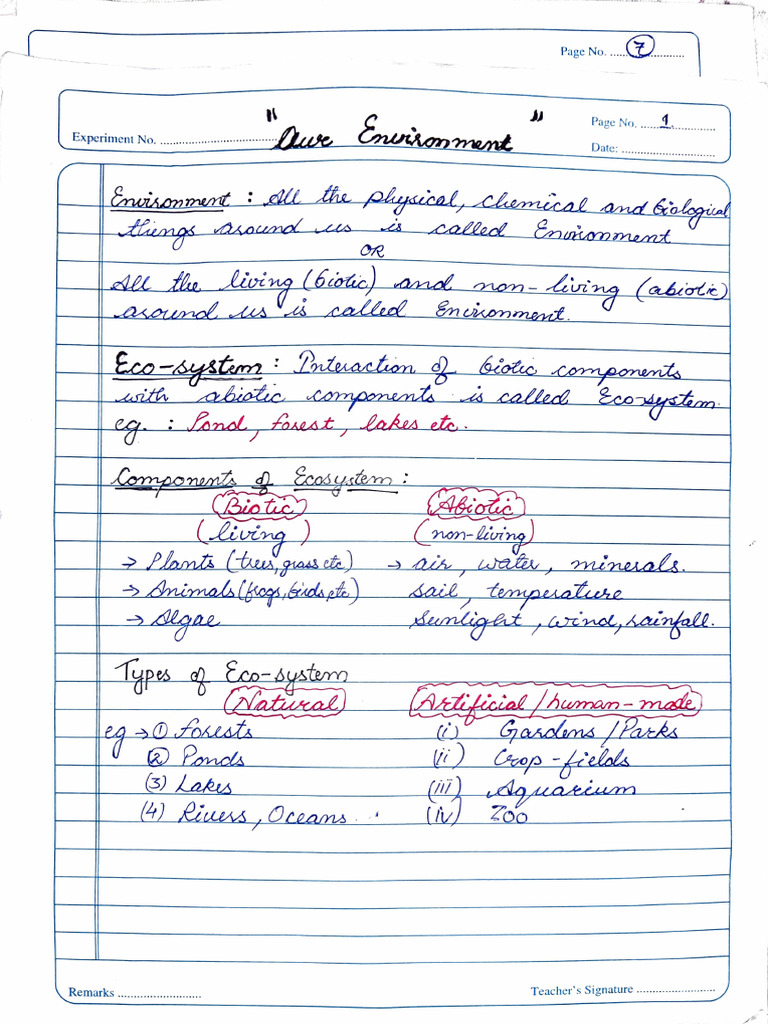 Page No. 7
" Our Environment "
Page No. 1
Experiment No.
Date:
Environment : All the physical, chemical and biological
things around us is called Environment
OR
All the living (biotic) and non-living (abiotic)
around us is called Environment.
Eco-system : Interaction of biotic components
with abiotic components is called Eco-system.
eg. : Pond, forest, lakes etc.
Components of Ecosystem :
Biotic Abiotic
(living) (non-living)
→ Plants (trees, grass etc) → air, water, minerals.
→ Animals (frogs, birds, etc) soil, temperature
→ Algae Sunlight, wind, rainfall.
Types of Eco-system
Natural Artificial/human-made
eg → ① Forests (i) Gardens/Parks
② Ponds (ii) Crop-fields
(3) Lakes (iii) Aquarium
(4) Rivers, Oceans.. (iv) Zoo
Remarks Teacher's Signature